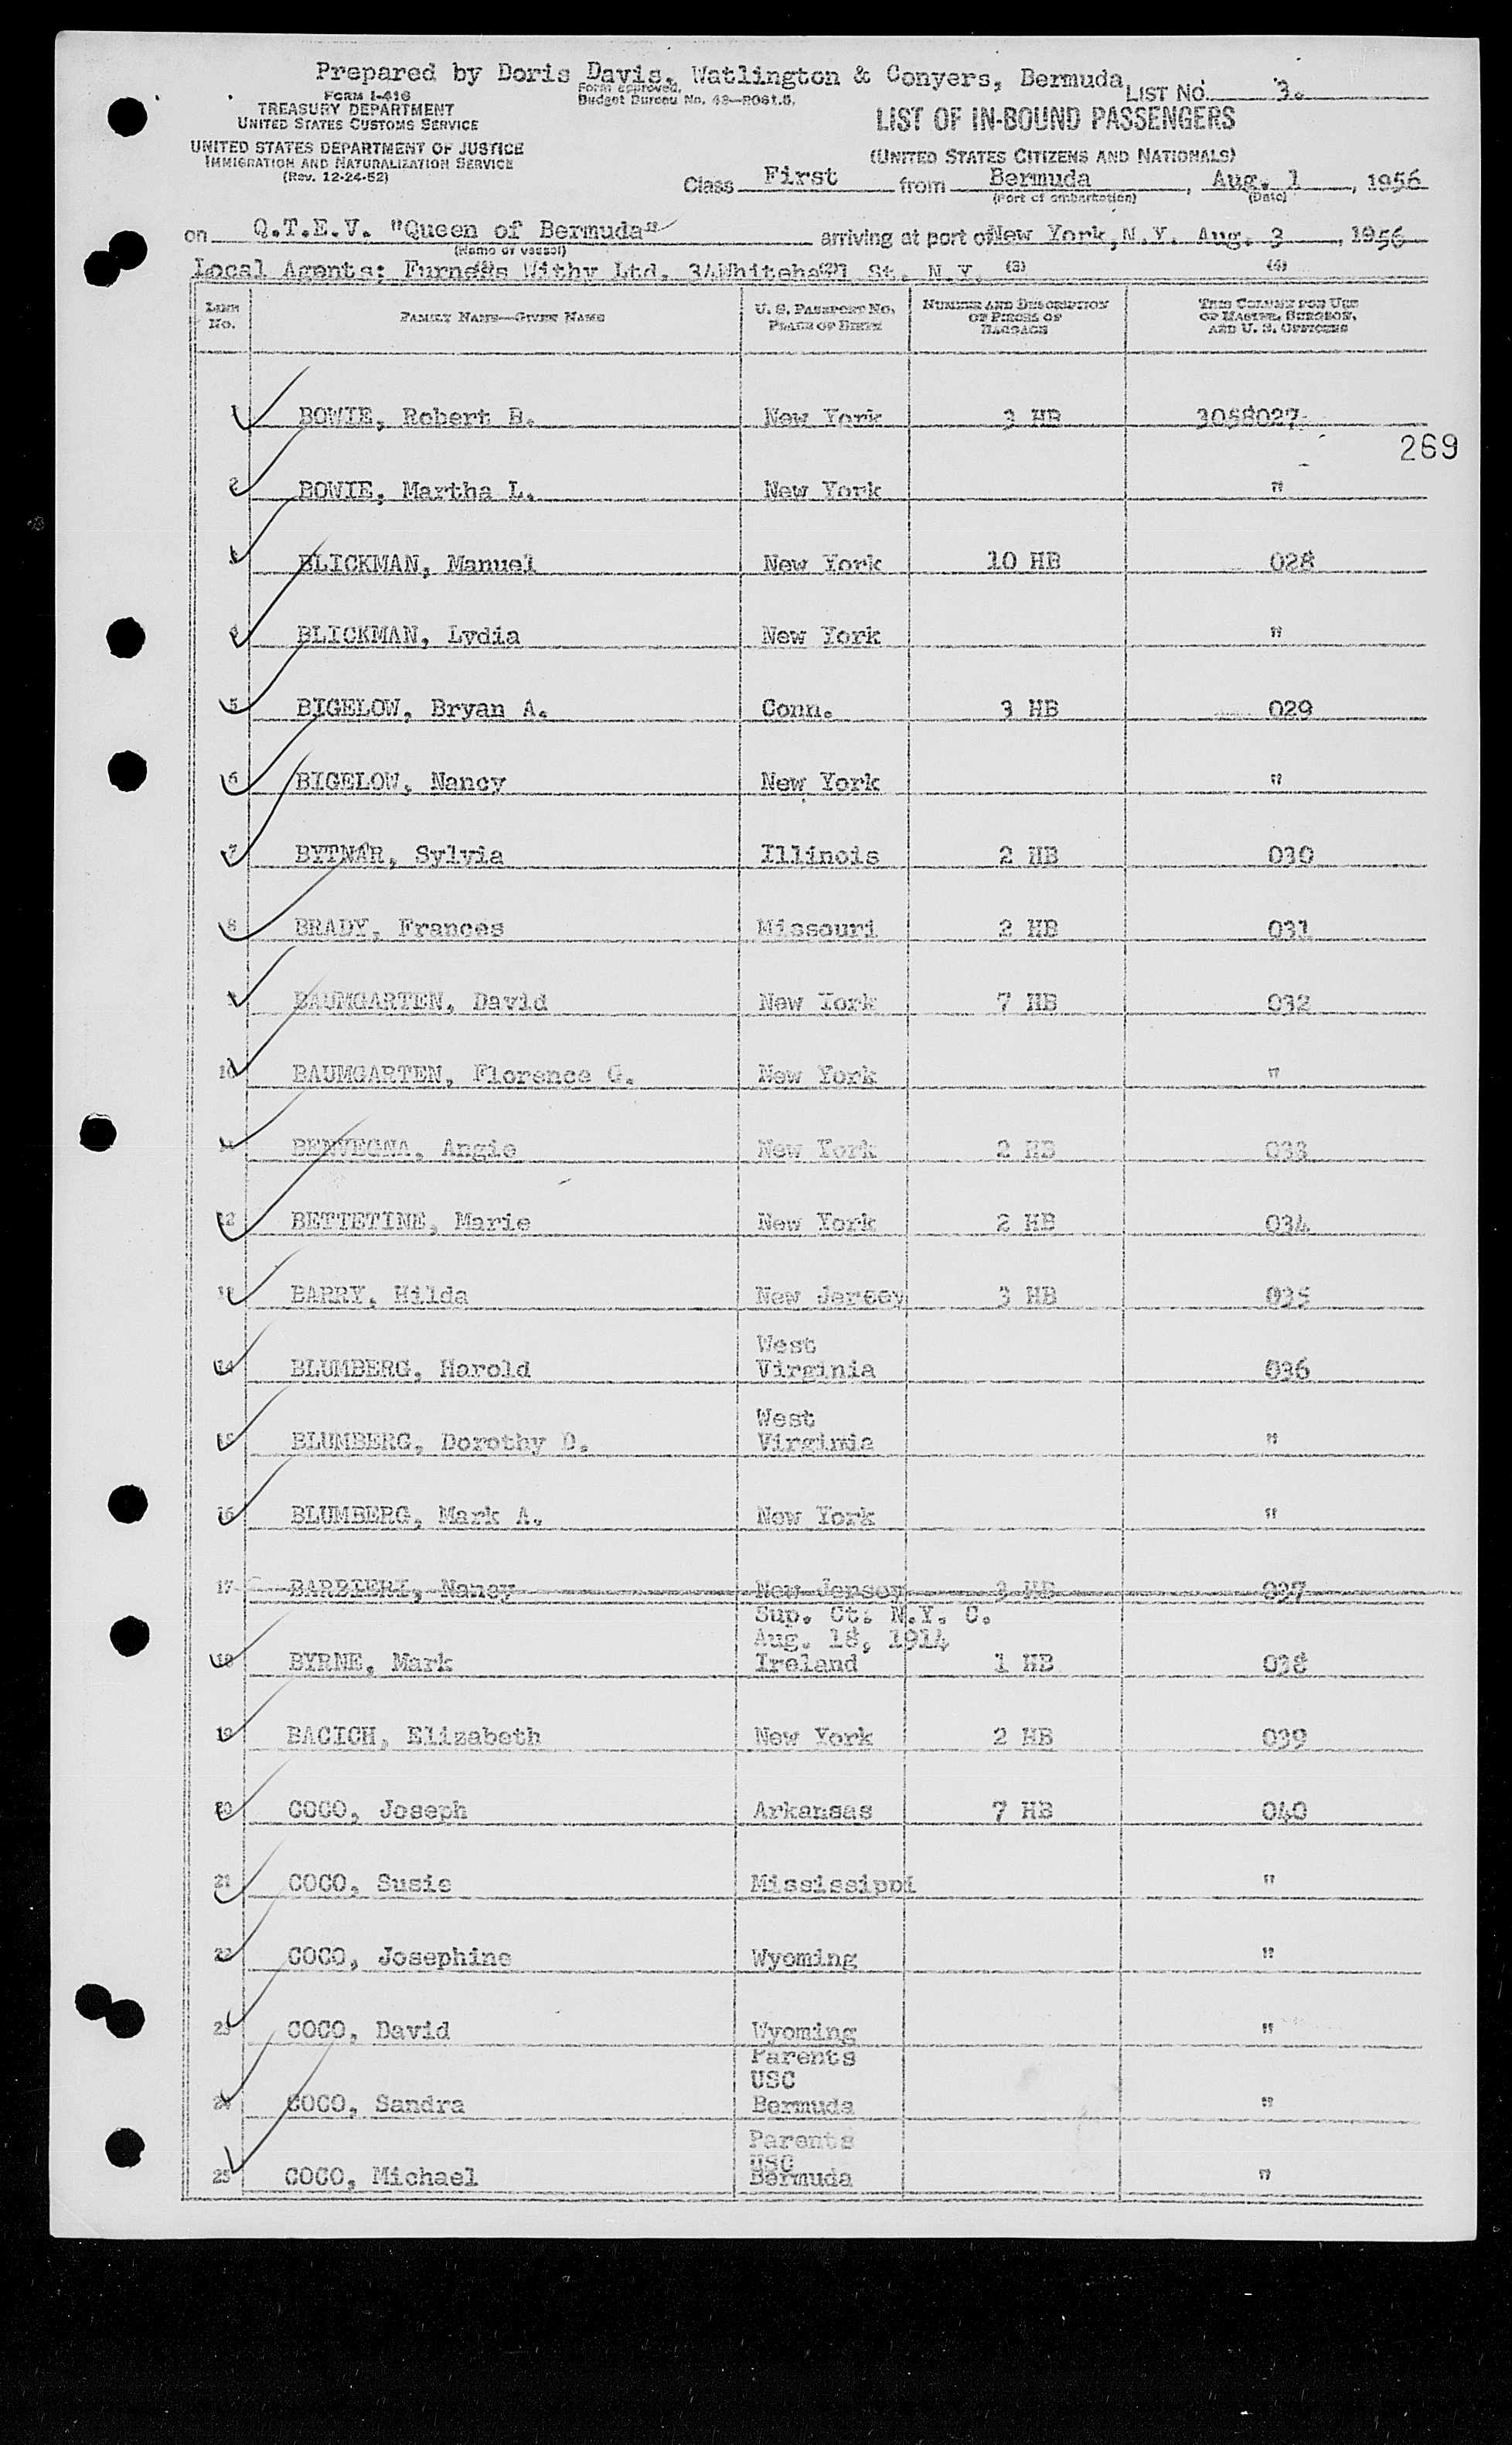 Prepared by Doris Davis, Watlington & Conyers, Bermuda LIST NO. 3.
FORM I-416
Form approved.
Budget Bureau No. 43—R061.5.
TREASURY DEPARTMENT
UNITED STATES CUSTOMS SERVICE
LIST OF IN-BOUND PASSENGERS
UNITED STATES DEPARTMENT OF JUSTICE
IMMIGRATION AND NATURALIZATION SERVICE
(Rev. 12-24-52)
(UNITED STATES CITIZENS AND NATIONALS)
Class First from Bermuda, Aug. 1, 1956
(Port of embarkation) (Date)
on Q.T.E.V. "Queen of Bermuda" arriving at port of New York, N.Y. Aug. 3, 1956
(Name of vessel)
Local Agents; Furness Withy Ltd. 34Whitehall St. N.Y. (3) (4)
LINE No. FAMILY NAME—GIVEN NAME U. S. PASSPORT NO. PLACE OF BIRTH NUMBER AND DESCRIPTION OF PIECES OF BAGGAGE THIS COLUMN FOR USE OF MASTER, SURGEON, AND U. S. OFFICERS
1 BOWIE, Robert B. New York 3 HB 3058027
269
2 BOWIE, Martha L. New York "
3 BLICKMAN, Manuel New York 10 HB 028
4 BLICKMAN, Lydia New York "
5 BIGELOW, Bryan A. Conn. 3 HB 029
6 BIGELOW, Nancy New York "
7 BYTNAR, Sylvia Illinois 2 HB 030
8 BRADY, Frances Missouri 2 HB 031
9 BAUMGARTEN, David New York 7 HB 032
10 BAUMGARTEN, Florence G. New York "
11 BENVEGNA, Angie New York 2 HB 033
12 BETTETINE, Marie New York 2 HB 034
13 BARRY, Hilda New Jersey 3 HB 035
West
14 BLUMBERG, Harold Virginia 036
West
15 BLUMBERG, Dorothy D. Virginia "
16 BLUMBERG, Mark A. New York "
17 BARBIERI, Nancy New Jersey 3 HB 037
Sup. Ct. N.Y. C.
Aug. 18, 1914
18 BYRNE, Mark Ireland 1 HB 038
19 BACICH, Elizabeth New York 2 HB 039
20 COCO, Joseph Arkansas 7 HB 040
21 COCO, Susie Mississippi "
22 COCO, Josephine Wyoming "
23 COCO, David Wyoming "
Parents
USC
24 COCO, Sandra Bermuda "
Parents
USC
25 COCO, Michael Bermuda "